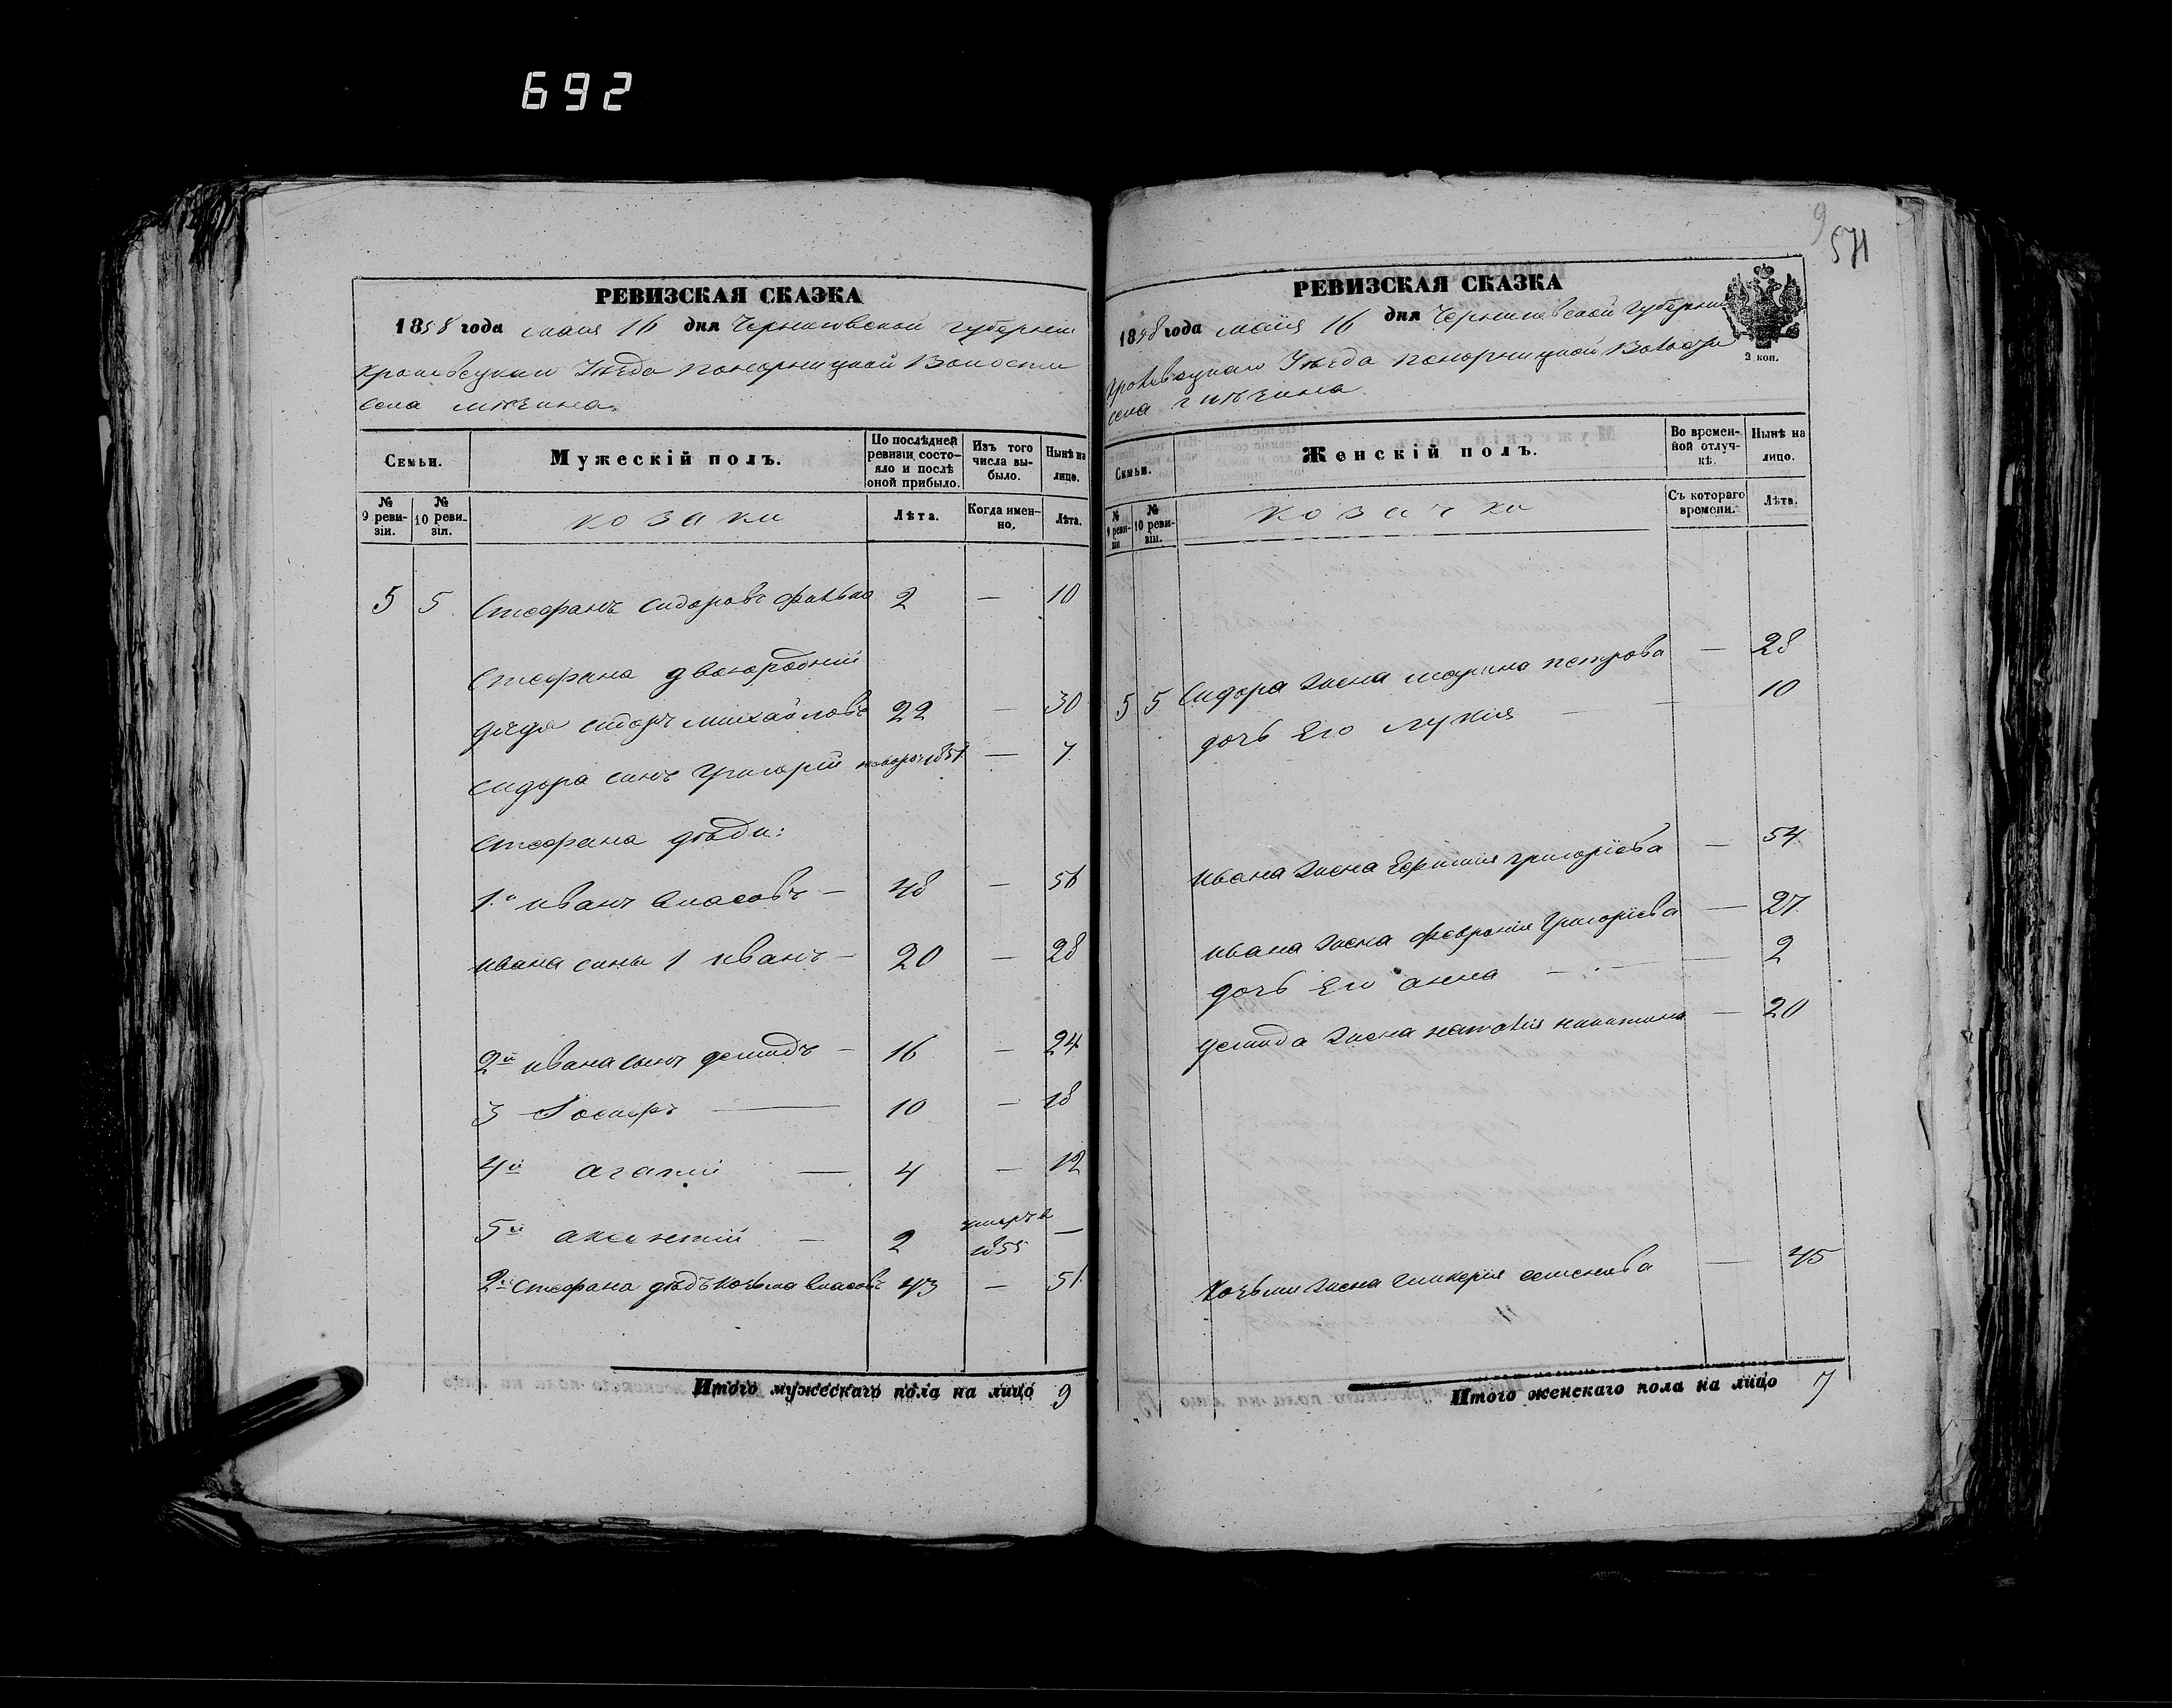 692
9
571
РЕВИЗСКАЯ СКАЗКА
1858 года мая 16 дня Черниговской губернии
Кролевецкаго Уѣзда понорницкой Волости
села
Семьи.
Мужескій полъ.
По послѣдней ревизіи состояло и послѣ оной прибыло.
Изъ того числа выбыло.
Нынѣ на лицо.
№ 9 ревизіи.
№ 10 ревизіи.
козаки
Лѣта.
Когда именно.
Лѣта.
5 5 Стефанъ Сидоровъ 2 — 10
Стефана двоюродній
дядя сидоръ михайловъ 22 — 30
сидора сынъ григорій 1851 — 7
Стефана дѣди:
1й иванъ власовъ — 48 — 56
ивана сины 1 иванъ — 20 — 28
2й ивана сынъ демидъ — 16 — 24
3 Іосифъ — 10 — 18
4й агапій — 4 — 12
5й аксентій — 2 умеръ в 1855 —
2й Стефана дѣдъ козьма власовъ 43 — 51
Итого мужескаго пола на лицо 9
РЕВИЗСКАЯ СКАЗКА
1858 года маія 16 дня Черниговской губернии
Кролевецкаго Уѣзда понорницкой Волости
села
2 коп.
Семьи.
Женскій полъ.
Во временной отлучкѣ.
Нынѣ на лицо.
№ 9 ревизіи
№ 10 ревизіи.
козачки
Съ котораго времени.
Лѣта.
5 5 Сидора жена марина петрова — 28
дочь Его лукія — 10
ивана жена Ефимия григоріева — 54
ивана жена феврония григоріева — 27
дочь Его анна — 2
демида жена наталия никитина — 20
козьми жена гликерия семенова — 45
Итого женскаго пола на лицо 7